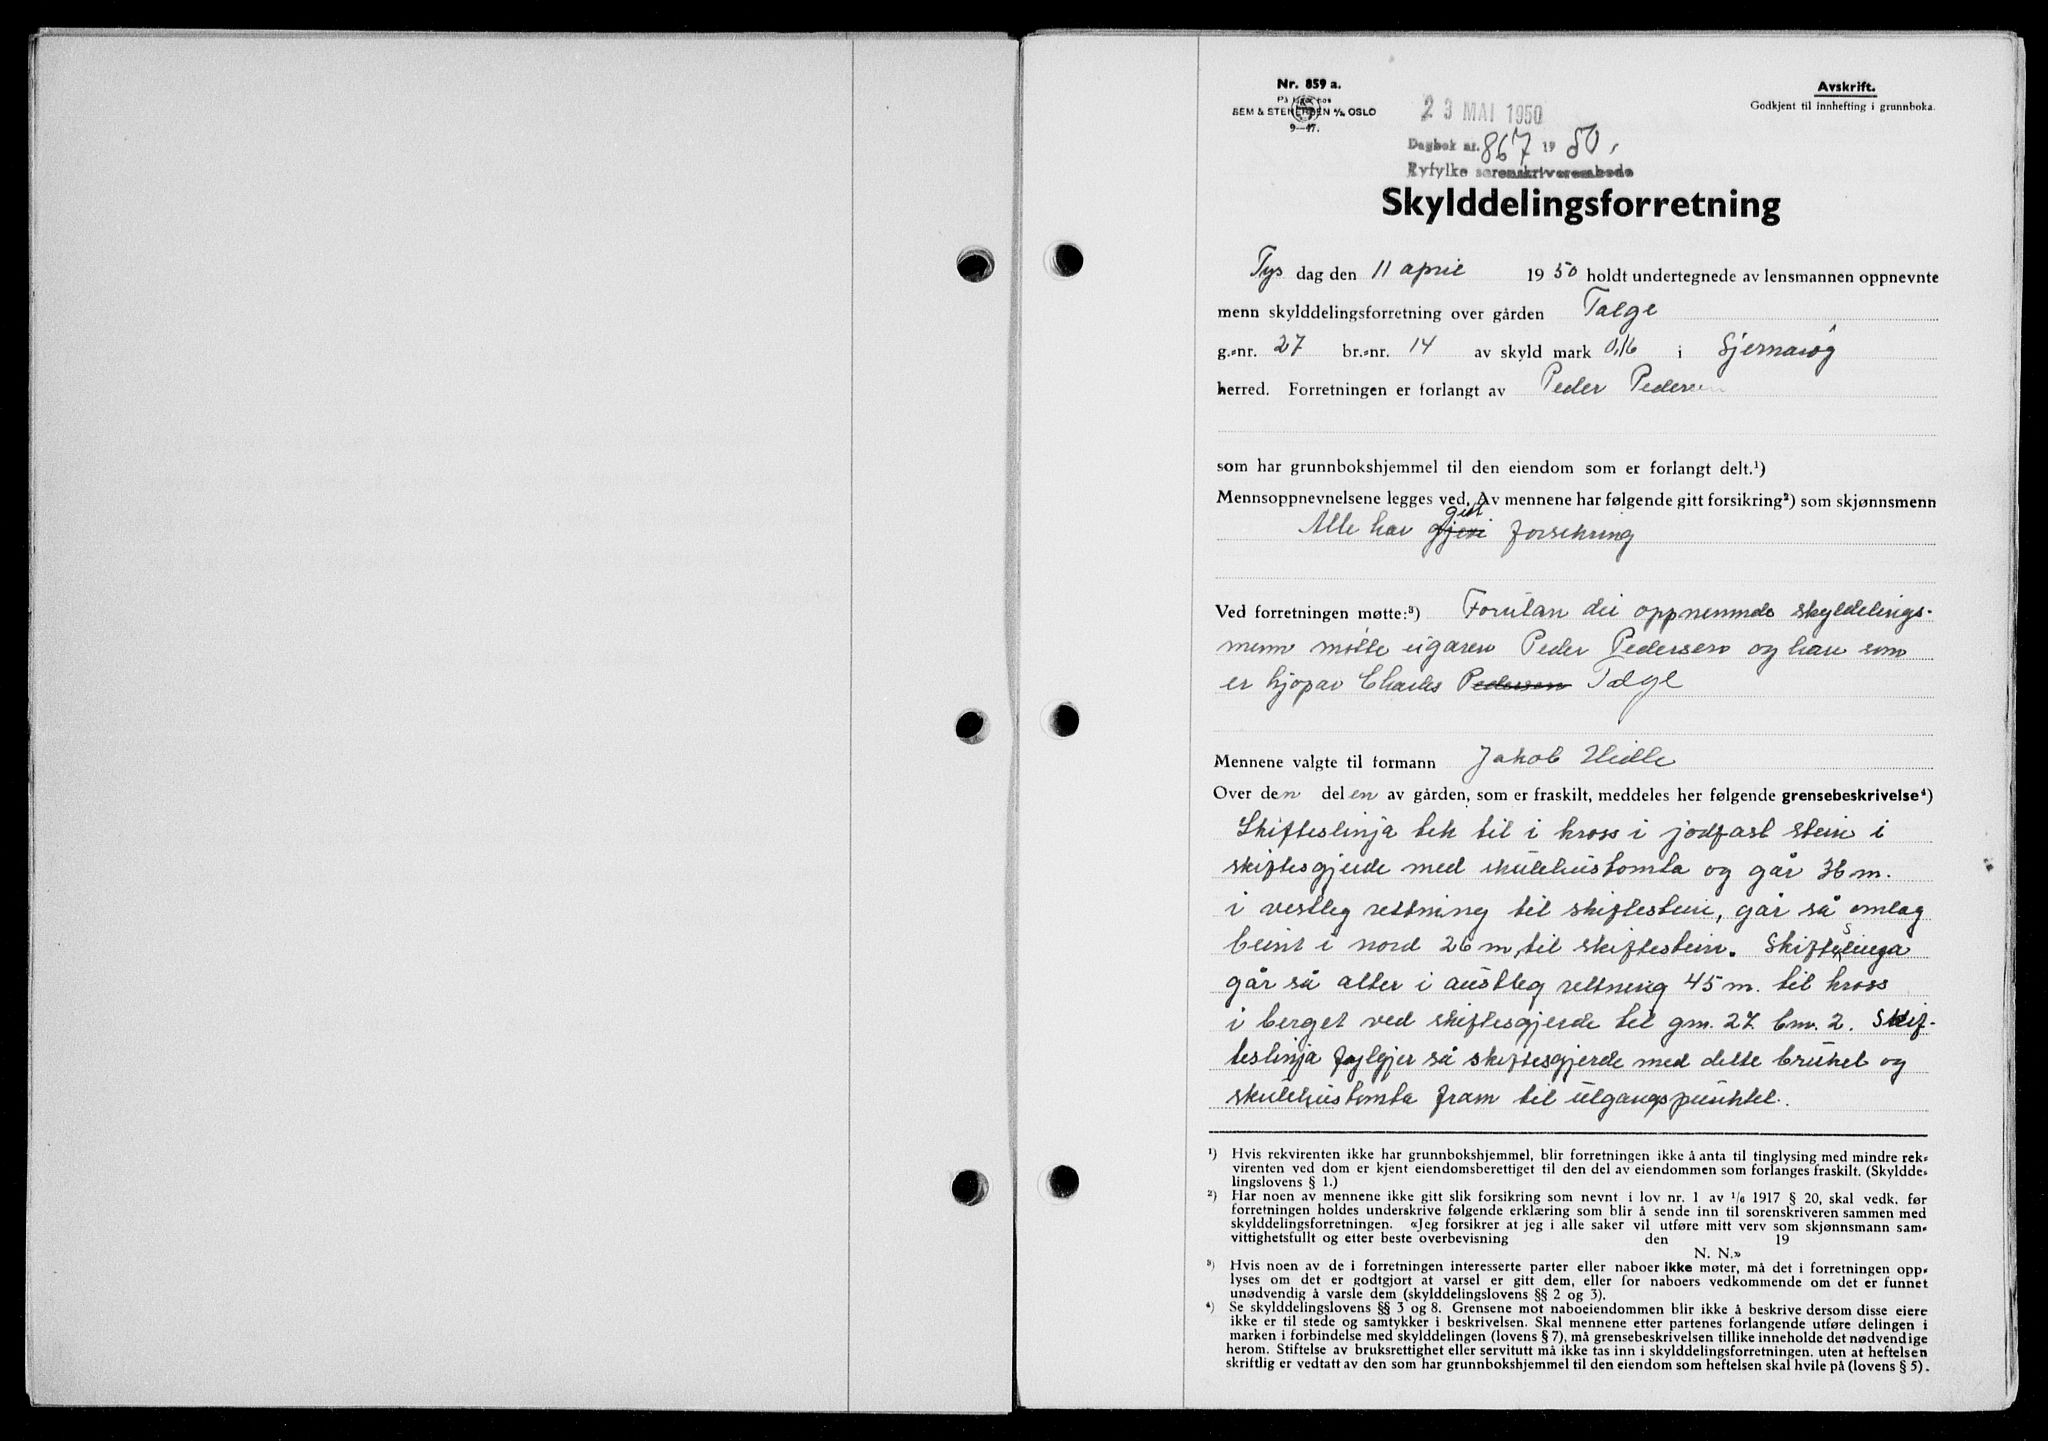 Nr. 859 a.
På lager hos
SEM & STENERSEN A/S OSLO
9—47.
Avskrift.
Godkjent til innhefting i grunnboka.
23 MAI 1950
Dagbok nr. 867 1950.
Ryfylke sorenskriverembede
Skylddelingsforretning
Tys dag den 11 april 1950 holdt undertegnede av lensmannen oppnevnte
menn skylddelingsforretning over gården Talge
g.-nr. 27 br.-nr. 14 av skyld mark 0,16 i Sjernarøy
herred. Forretningen er forlangt av Peder Pedersen
som har grunnbokshjemmel til den eiendom som er forlangt delt.¹)
Mennsoppnevnelsene legges ved. Av mennene har følgende gitt forsikring²) som skjønnsmenn
Alle har gjevi gitt forsikring
Ved forretningen møtte:³) Forutan dei oppnemnde skyldelings-
menn møtte eigaren Peder Pedersen og han som
er kjøpar Charles Pedersen Talge
Mennene valgte til formann Jakob Hidle
Over den delen av gården, som er fraskilt, meddeles her følgende grensebeskrivelse⁴)
Skifteslinja tek til i kross i jordfast stein i
skiftesgjerde med skulehustomta og går 36 m.
i vestleg rettning til skiftestein, går så omlag
beint i nord 26 m, til skiftestein. Skifteslinja
går så atter i austleg rettning 45 m. til kross
i berget ved skiftesgjerde til gnr. 27 bnr. 2. Skif-
teslinja fylgjer så skiftesgjerde med dette bruket og
skulehustomta fram til utgangspunktet.
¹) Hvis rekvirenten ikke har grunnbokshjemmel, blir forretningen ikke å anta til tinglysing med mindre rek-
virenten ved dom er kjent eiendomsberettiget til den del av eiendommen som forlanges fraskilt. (Skyldde-
lingslovens § 1.)
²) Har noen av mennene ikke gitt slik forsikring som nevnt i lov nr. 1 av 1/6 1917 § 20, skal vedk. før
forretningen holdes underskrive følgende erklæring som blir å sende inn til sorenskriveren sammen med
skylddelingsforretningen. «Jeg forsikrer at jeg i alle saker vil utføre mitt verv som skjønnsmann sam-
vittighetsfullt og etter beste overbevisning den 19
N. N.»
³) Hvis noen av de i forretningen interesserte parter eller naboer ikke møter, må det i forretningen opp-
lyses om det er godtgjort at varsel er gitt dem, eller for naboers vedkommende om det er funnet
unødvendig å varsle dem (skylddelingslovens §§ 2 og 3).
⁴) Se skylddelingslovens §§ 3 og 8. Grensene mot naboeiendommen blir ikke å beskrive dersom disse eiere
ikke er til stede og samtykker i beskrivelsen. Skal mennene etter partenes forlangende utføre delingen i
marken i forbindelse med skylddelingen (lovens § 7), må grensebeskrivelsen tillike inneholde det nødvendige
herom. Stiftelse av bruksrettighet eller servitutt må ikke tas inn i skylddelingsforretningen. uten at heftelsen
skriftlig er vedtatt av den som har grunnbokshjemmel til den eiendom som heftelsen skal hvile på (lovens § 5).